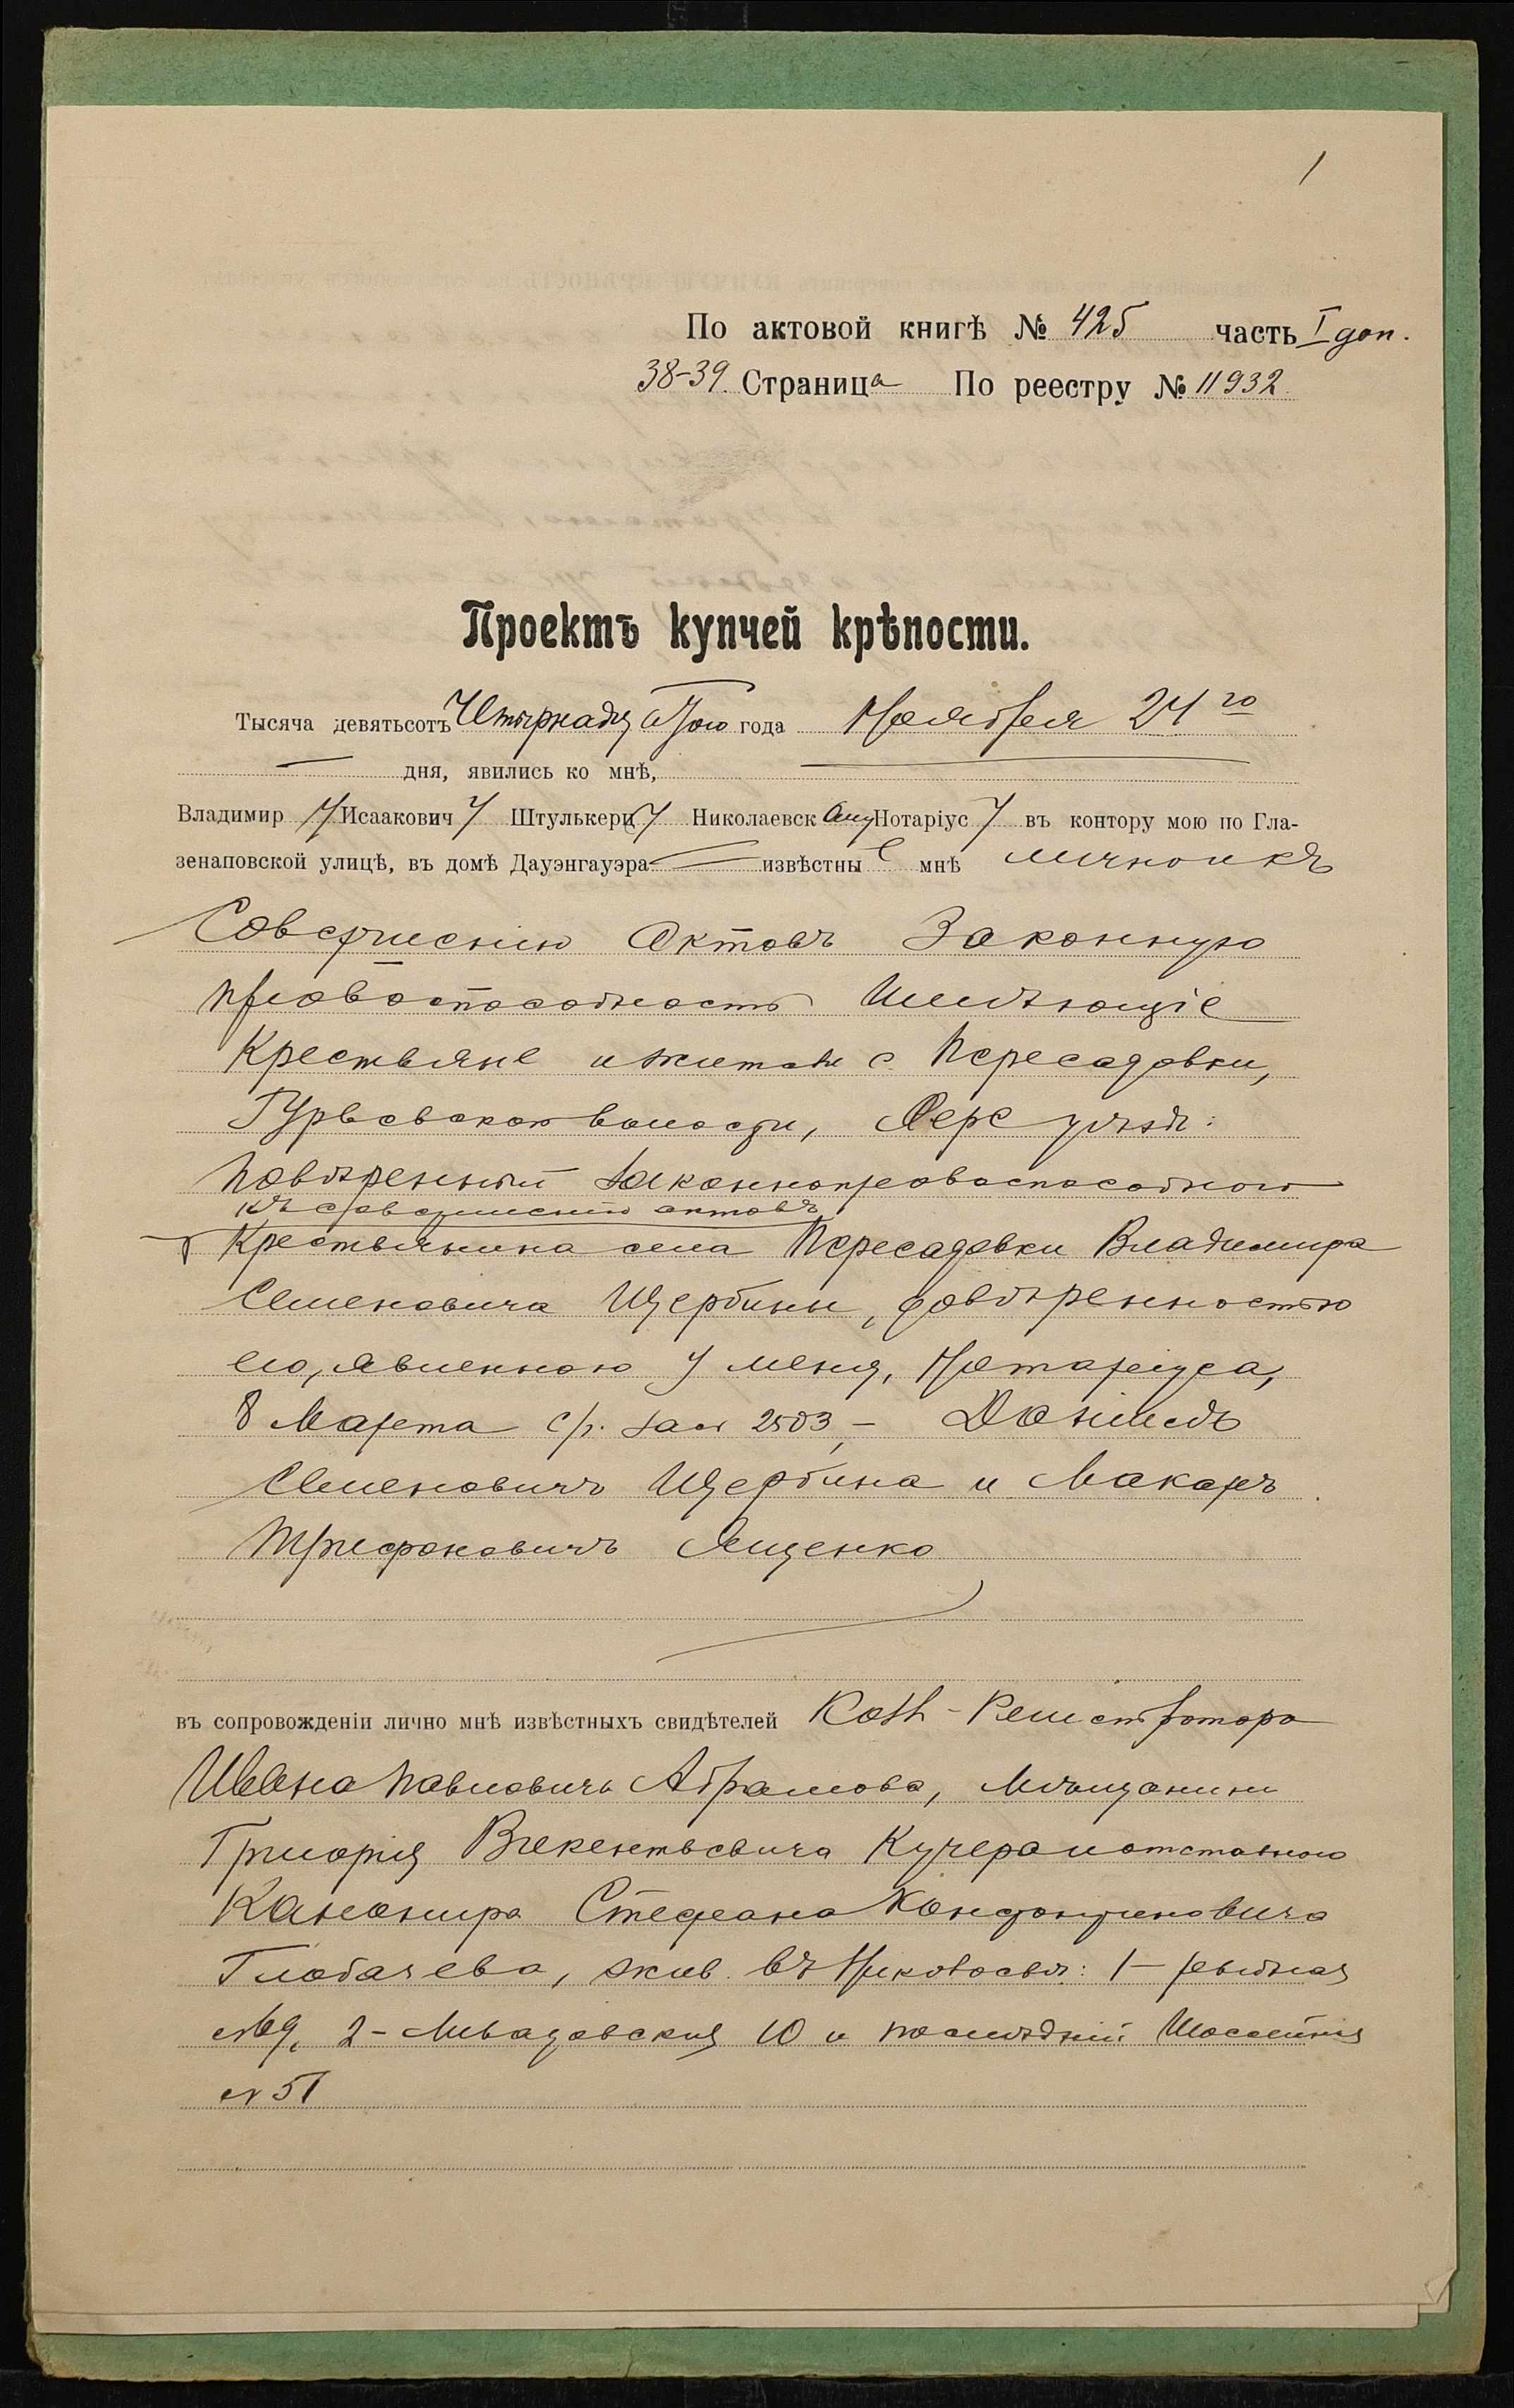 1
По актовой книгѣ № 425 часть I доп.
38-39 Страница По реестру № 11932
Проектъ купчей крѣпости.
Тысяча девятьсотъ Четырнадцатого года Ноября 24го
дня, явились ко мнѣ,
Владимиру Исааковичу Штулькерцу Николаевск Нотаріусу въ контору мою по Гла-
зенаповской улицѣ, въ домѣ Дауэнгауэра извѣстные мнѣ лично и къ
Совершенію Актовъ Законную
правоспособность Имѣющіе
Крестьяне и жители с. Пересадовки,
Гурьевской волости, Херс уѣзд:
Повѣренный Законноправоспособного
къ совершенію актовъ
Крестьянина села Пересадовки Владимира
Семеновича Щербины, довѣренностью
его, явленною у меня, Нотаріуса,
8 Марта с/г. за № 2503, – Даніилъ
Семеновичъ Щербина и Макаръ
Трифоновичъ Ященко
въ сопровожденіи лично мнѣ извѣстныхъ свидѣтелей Колл-Регистратора
Ивана Павловича Абрамова, Мѣщанина
Григорія Викентьевича Кучера и отставного
Канонира Стефана Константиновича
Глобачева, жив. въ Николаевѣ: 1 –
№ 9, 2 – Ливадовская 10 и послѣдній Шоссейная
№ 51